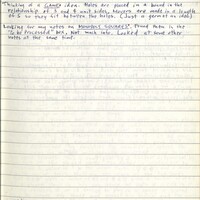 Thinking of a GAMES idea. Holes are placed in a board in the
relationship of 3 and 4 unit sides. Movers are made in a length
of 5 so they fit between the holes. (Just a germ of an idea)
Looking for my notes on MAGIC SQUARES. Found them in the
"to be processed" box. Not much luck. Looked at some other
notes at the same time.